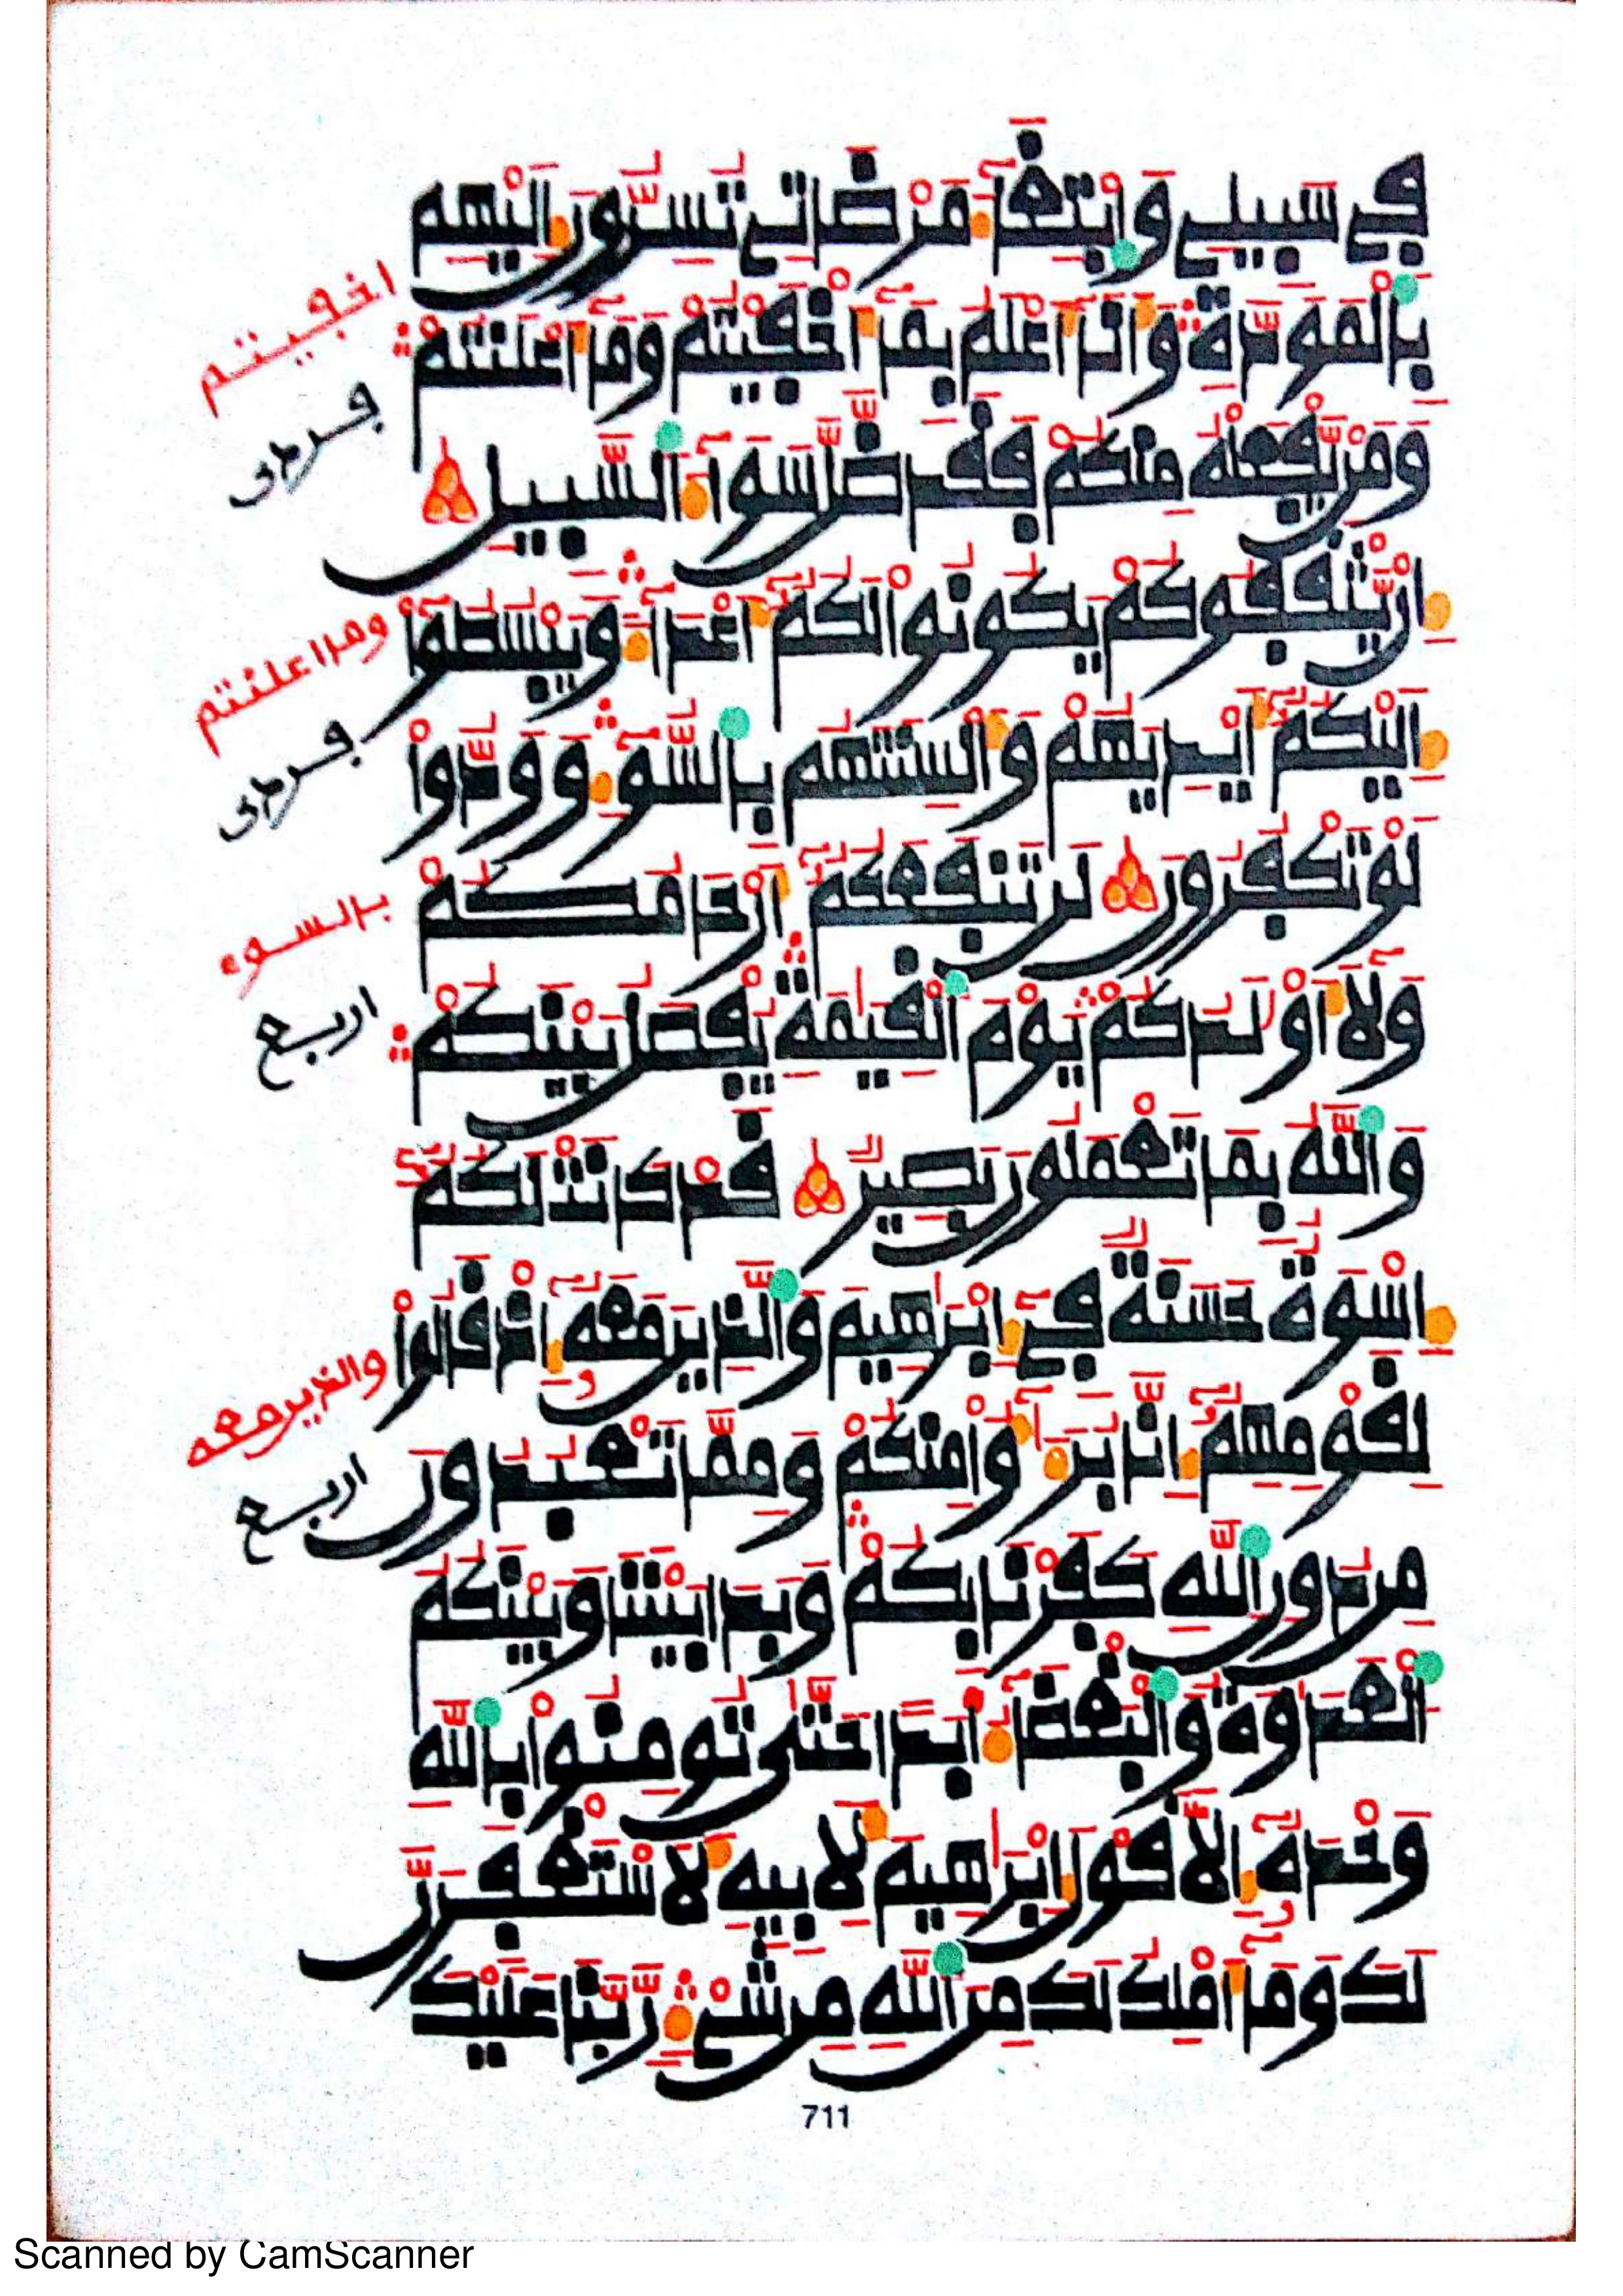 في سبيلے وابتغآء مرضاتے تسرون إليهم
بالمودة وأنا أعلم بمآ أخفيتم ومآ أعلنتم
ومن يفعله منكم فقد ضل سوآء السبيل
إن يثقفوكم يكونوا لكم أعدآء ويبسطوا
إليكم أيديهم وألسنتهم بالسوء وودوا
لو تكفرون لن تنفعكم أرحامكم
ولا أولدكم يوم القيمة يفصل بينكم
والله بما تعملون بصير قد كانت لكم
إسوة حسنة في إبرهيم والذين معه إذ قالوا
لقومهم إنا برءٰؤا منكم ومما تعبدون
من دون الله كفرنا بكم وبدا بيننا وبينكم
العدوة والبغضآء أبدا حتى تومنوا بالله
وحده إلا قول إبرهيم لأبيه لأستغفرن
لك ومآ أملك لك من الله من شيء ربنا عليك
اخفيتم
ومااعلنتم
بالسوء
اربع
والذين معه
اربع
711
Scanned by CamScanner